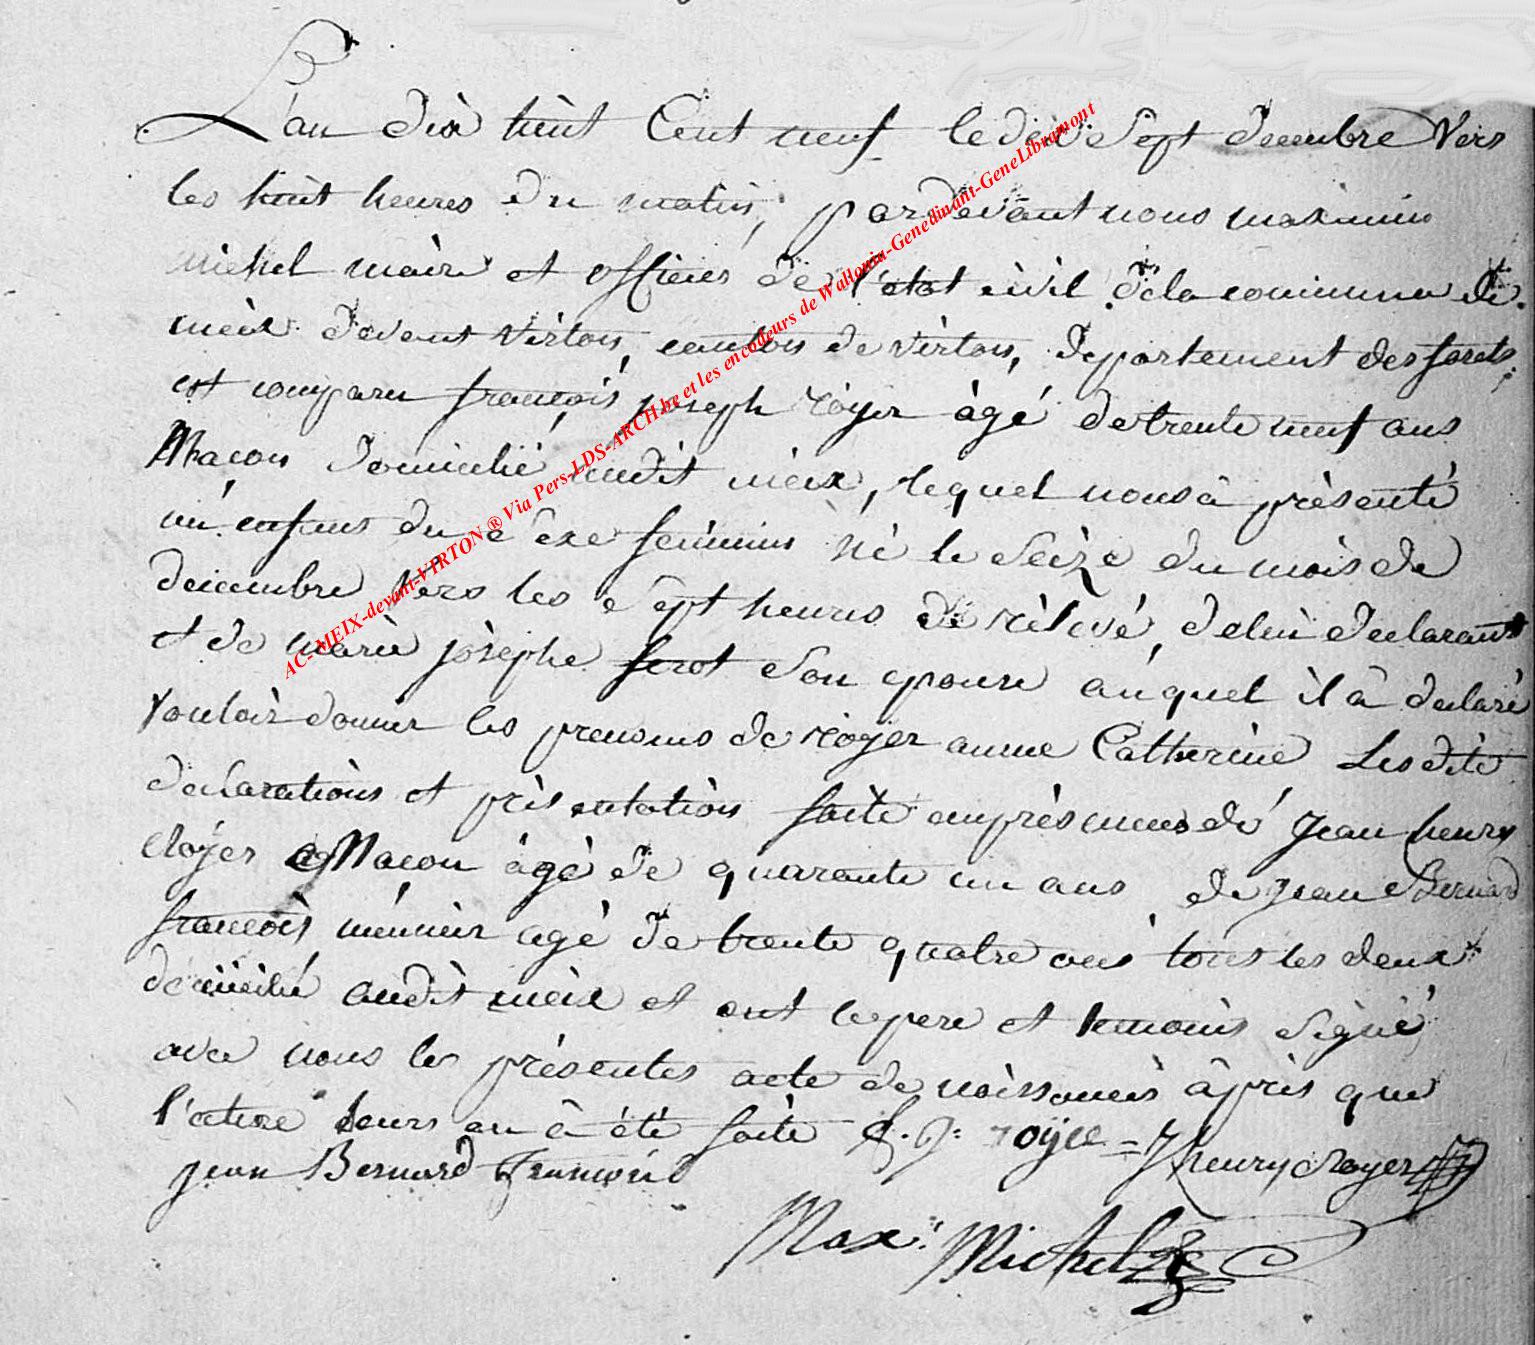 L'an dix huit Cent neuf le dix Sept decembre vers
les huit heures du matin, par devant nous maximin
michel maire et officier de l'etat civil de la commune de
meix devant virton, canton de virton, departement des forets,
est comparu françois joseph roÿer âgé de trente neuf ans
Macon domicilié audit meix, lequel nous à présenté
un enfant du sexe feminin né le Seize du mois de
decembre vers les sept heures de rélevé, de lui declarant
et de marie josèphe serot son epouse auquel il à declaré
vouloir donner les prenoms de roÿer anne Catherine Lesdite
declarations et présentation faite en présence dé Jean henry
Roÿer Macon âgé de quarante un ans de Jean Bernard
françoisménier agé de trente quatre ans tous les deux
domicilié audit meix et ont le pere et temoins signé
avec nous les présentes acte de naissances âprès que
l'ecture leurs en à été faite f. J: roÿer = J henry Royer
jean Bernard François
Max: Michel
AC-MEIX-devant-VIRTON ® Via Pers-LDS-ARCH.be et les encodeurs de Wallonia-Genedinant-GeneLibramont